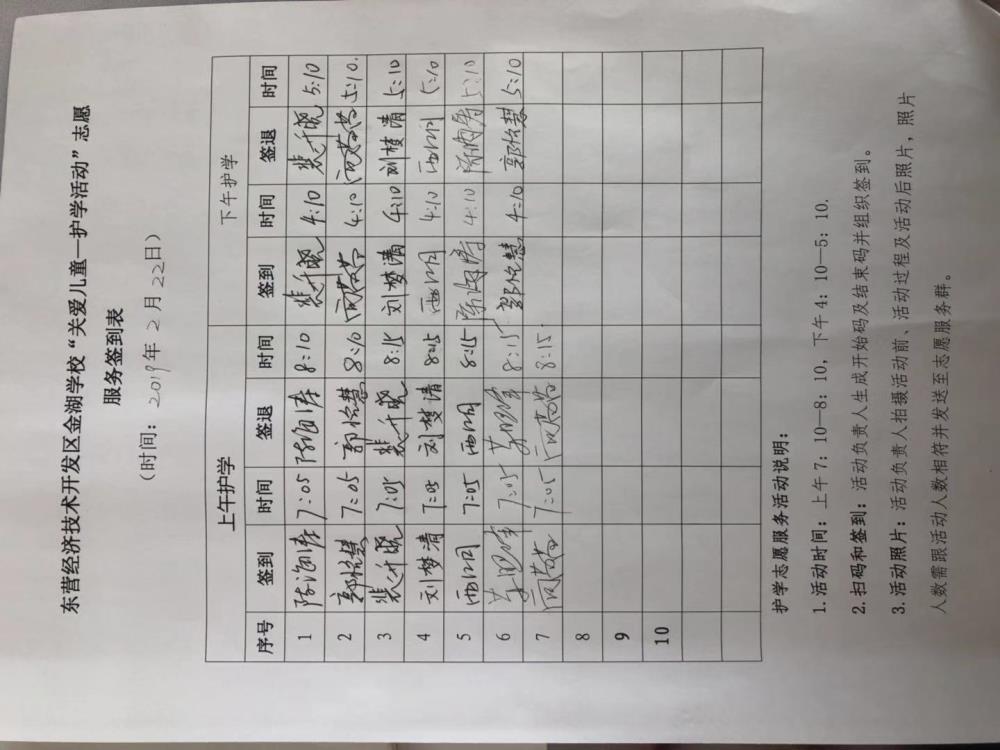 东营经济技术开发区金湖学校“关爱儿童—护学活动”志愿
服务签到表
(时间：2019年2月22日)
上午护学 下午护学
序号 签到 时间 签退 时间 签到 时间 签退 时间
1 7:05 8:10 4:10 5:10
2 郭怡慧 7:05 郭怡慧 8:10 4:10 5:10.
3 7:05 8:15 刘梦清 4:10 刘梦清 5:10
4 刘梦清 7:05 刘梦清 8:15 4:10 5:10
5 7:05 8:15 4:10 5:10
6 7:05 8:15 郭怡慧 4:10 郭怡慧 5:10
7 7:05 8:15.
8
9
10
护学志愿服务活动说明：
1.活动时间：上午7：10—8：10，下午4：10—5：10.
2.扫码和签到：活动负责人生成开始码及结束码并组织签到。
3.活动照片：活动负责人拍摄活动前、活动过程及活动后照片，照片
人数需跟活动人数相符并发送至志愿服务群。